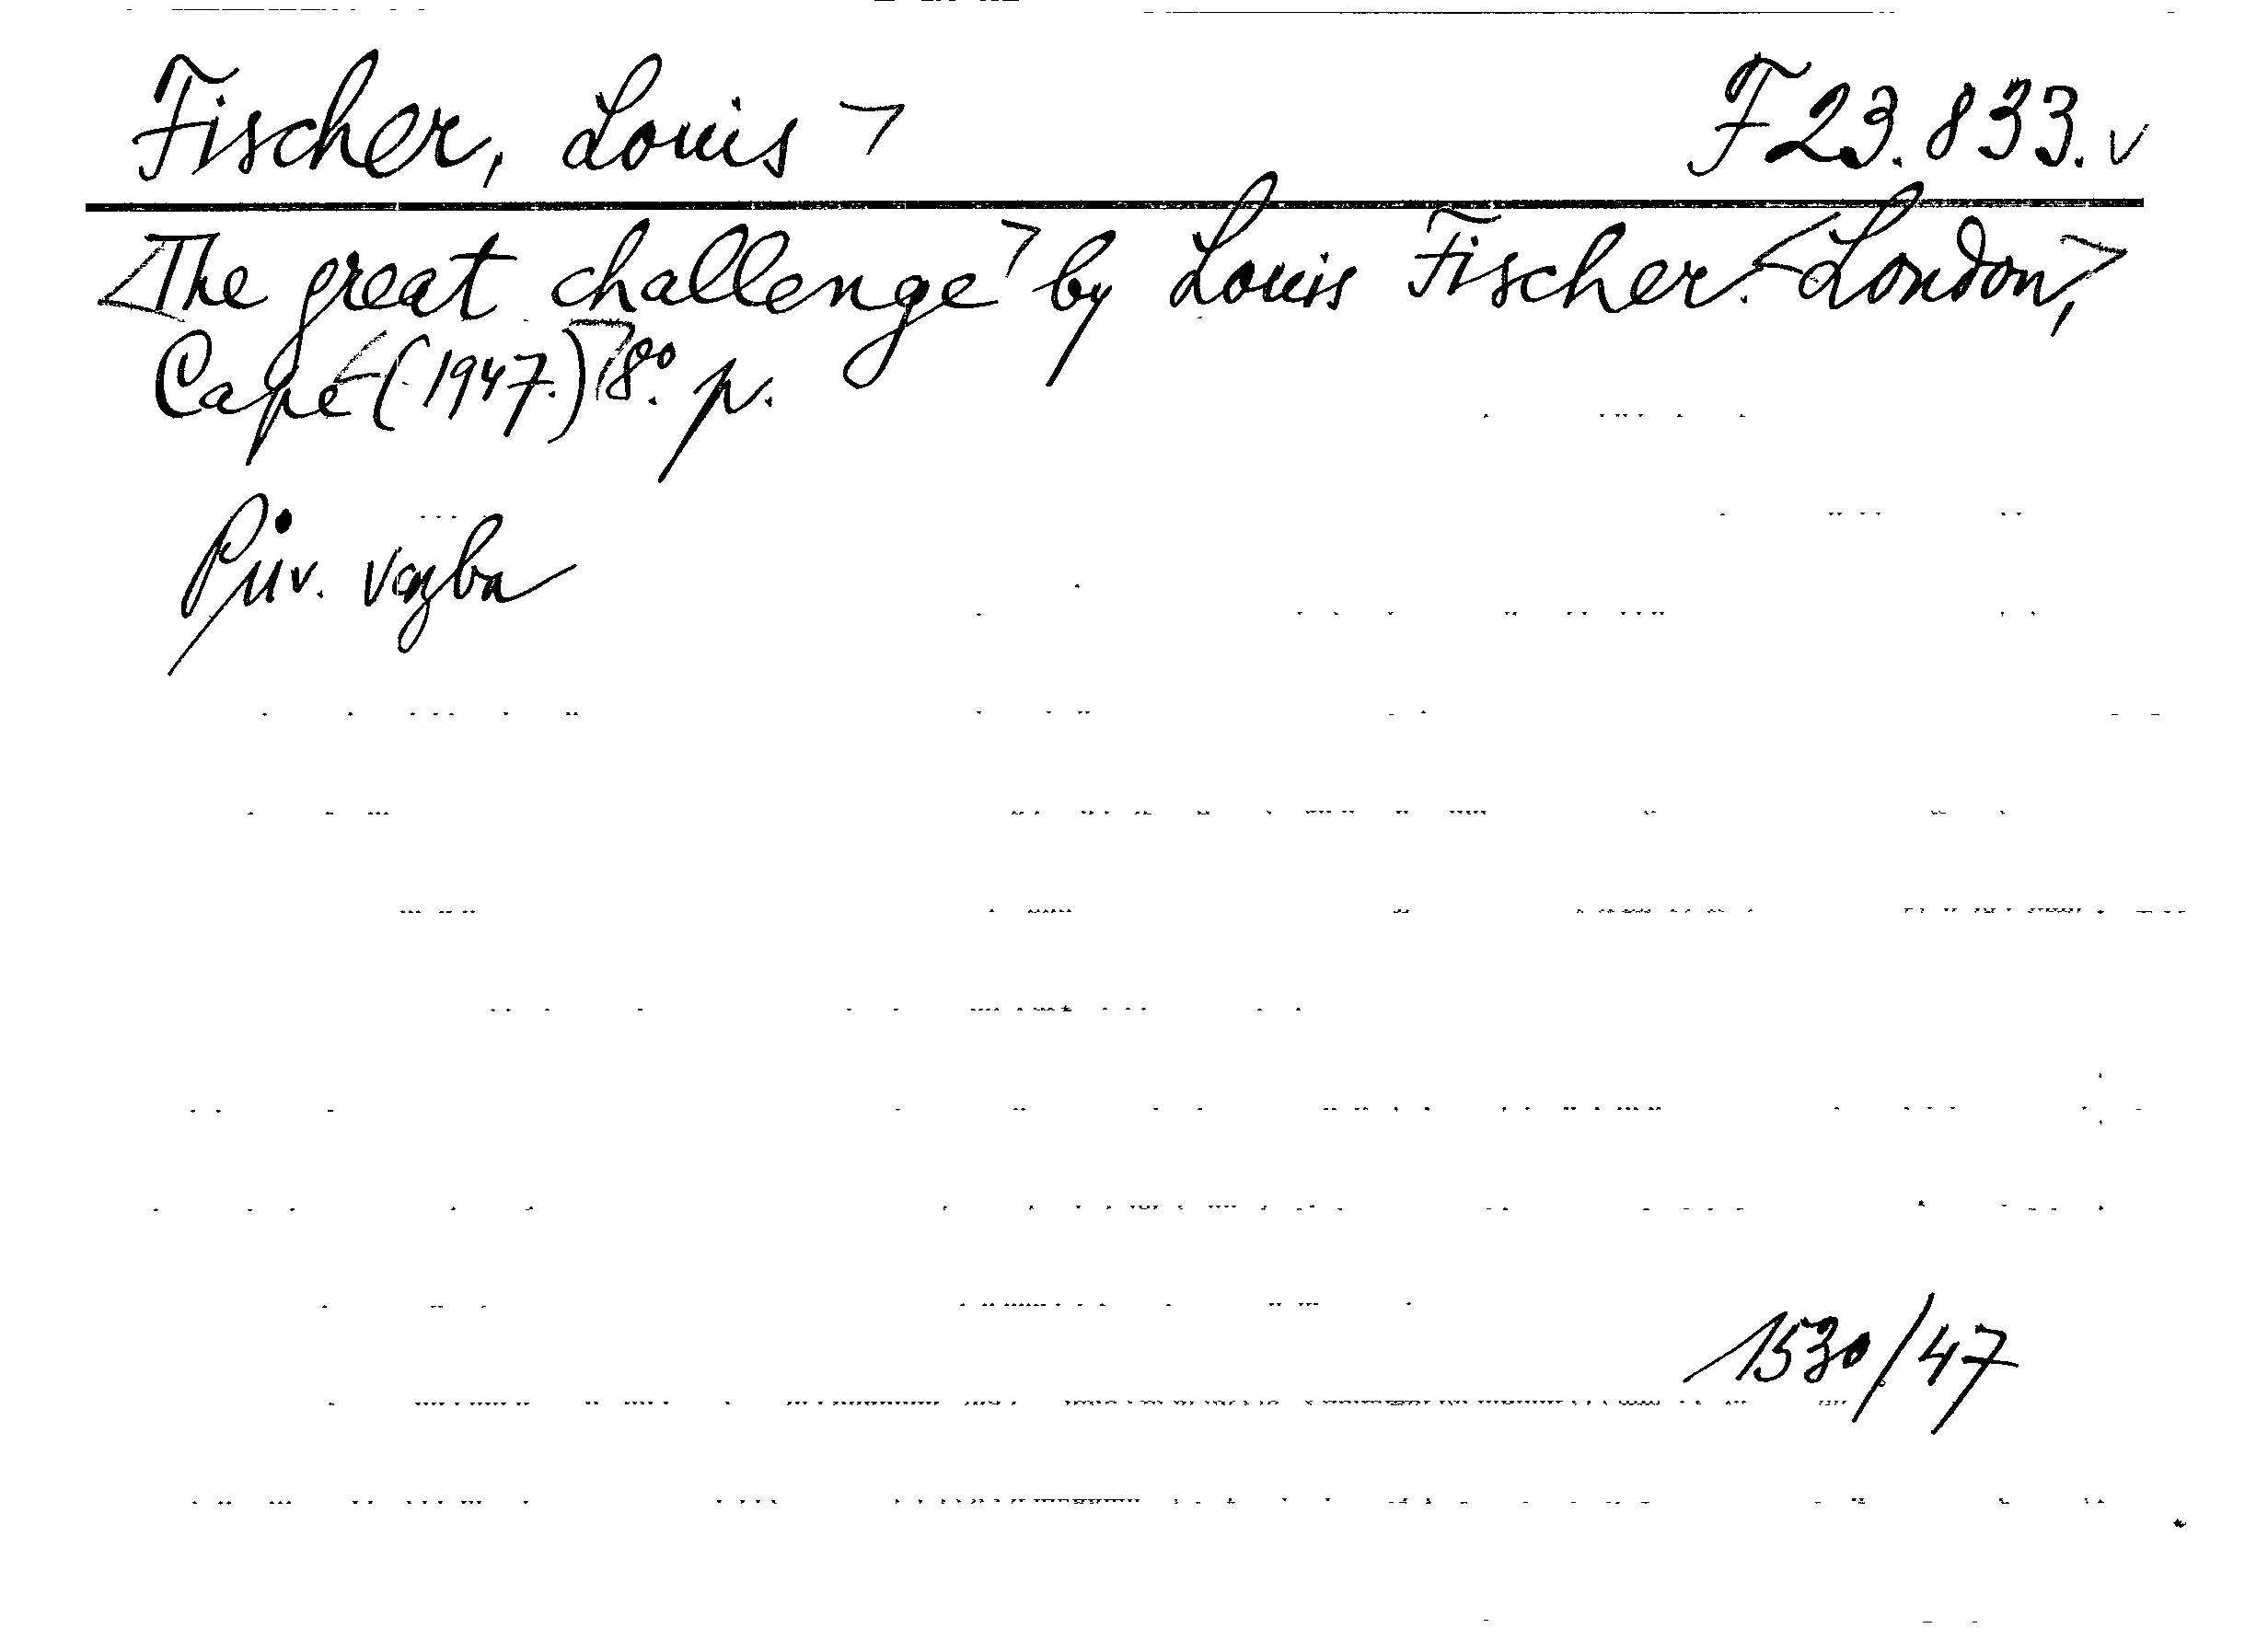 Fischer, Louis ¬ F 23.833. v
<The great challenge¬ by Louis Fischer. <London,¬
Cape <(1947.)¬ 8°. p.
Pův. vazba
1530/47